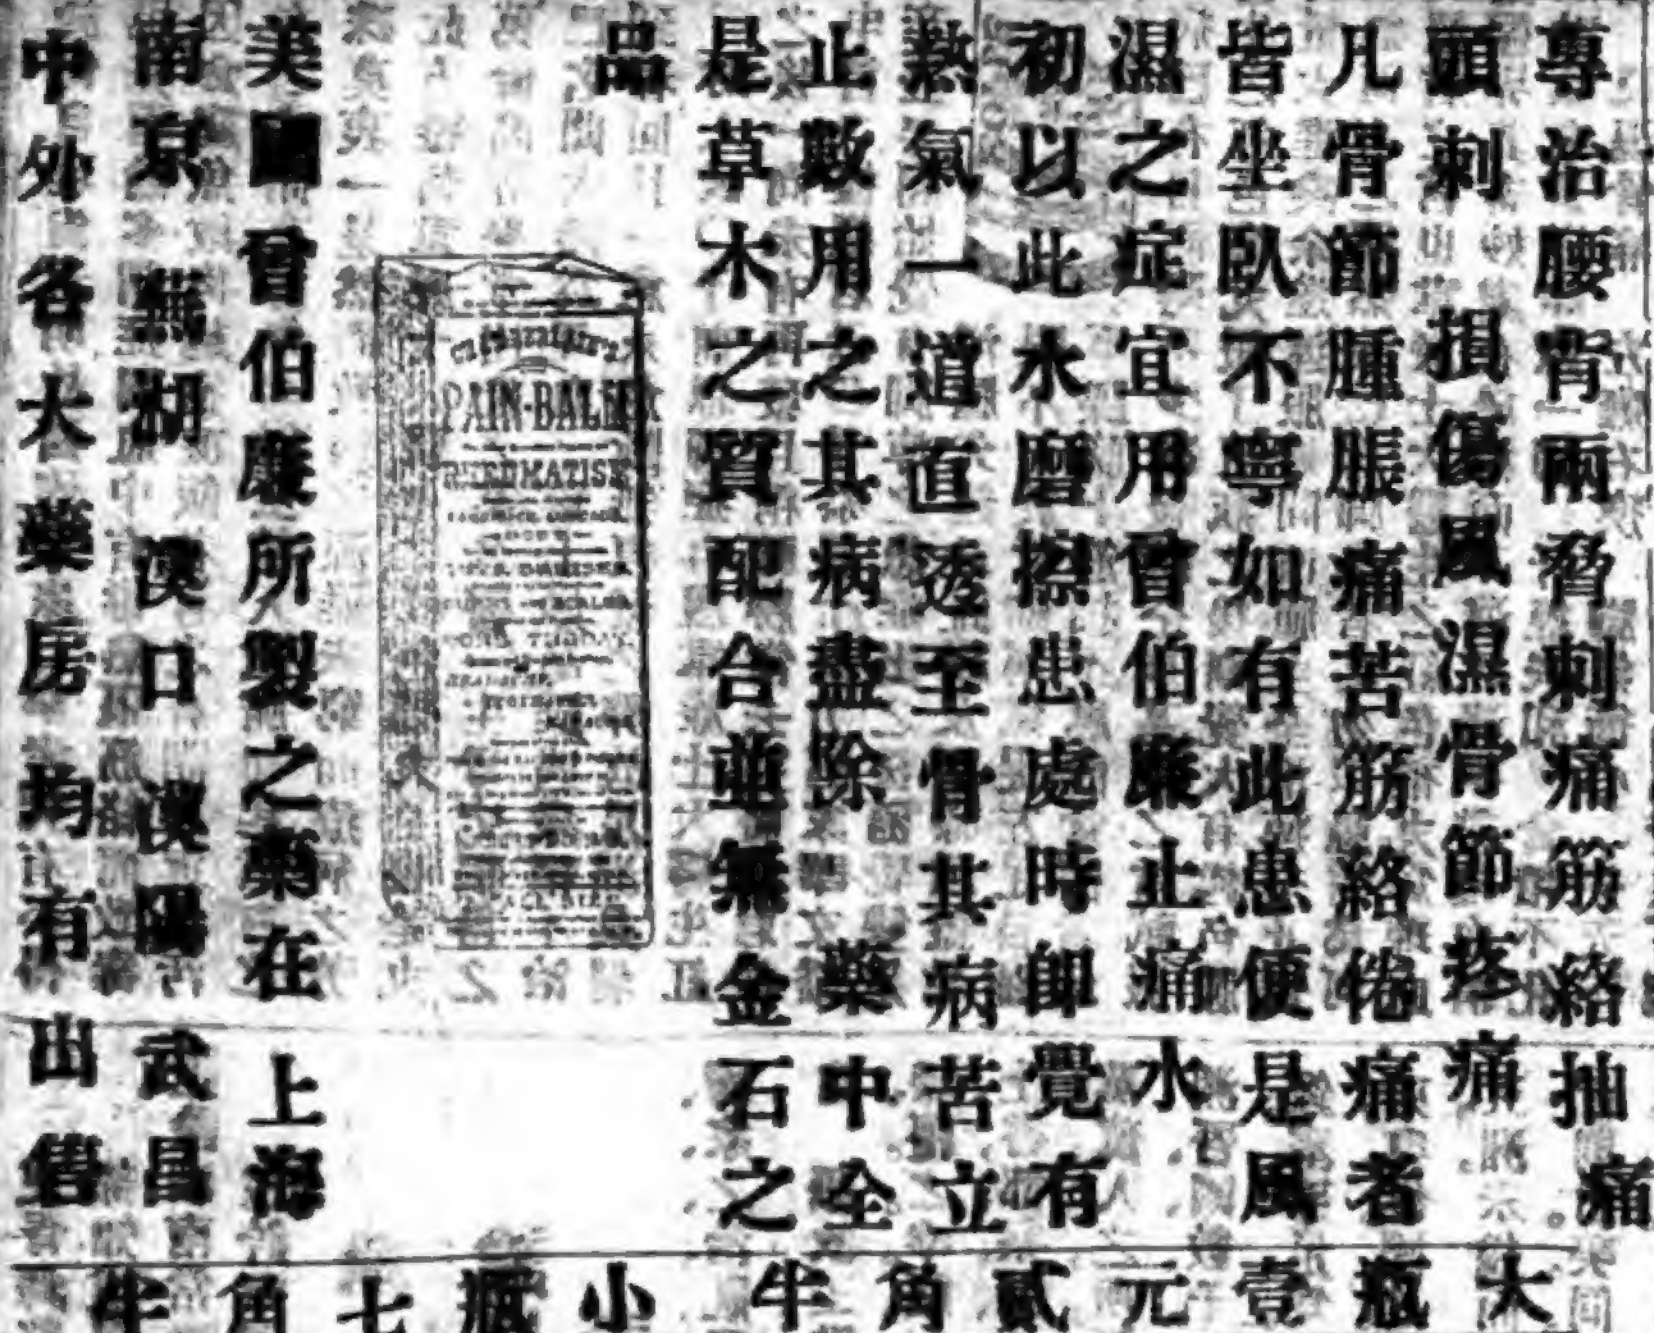 專治腰背兩脅刺痛筋絡抽痛
頭刺 損傷風濕骨節疼痛
凡骨節腫脹痛苦筋絡倦痛者
皆坐臥不寧如有此患便是風
濕之症宜用曾伯廉止痛水
初以此水磨擦患處時卽覺有
熱氣一道直透至骨其病苦立
止數用之其病盡除 藥中全
是草木之質配合並無金石之
品
Chamberlain's
PAIN-BALM
RHEUMATISM
美國曾伯廉所製之藥在 上海
南京 蕪湖 漢口 漢陽 武昌
中外各大藥房均有出售
大瓶壹元貳角半 小瓶七角半